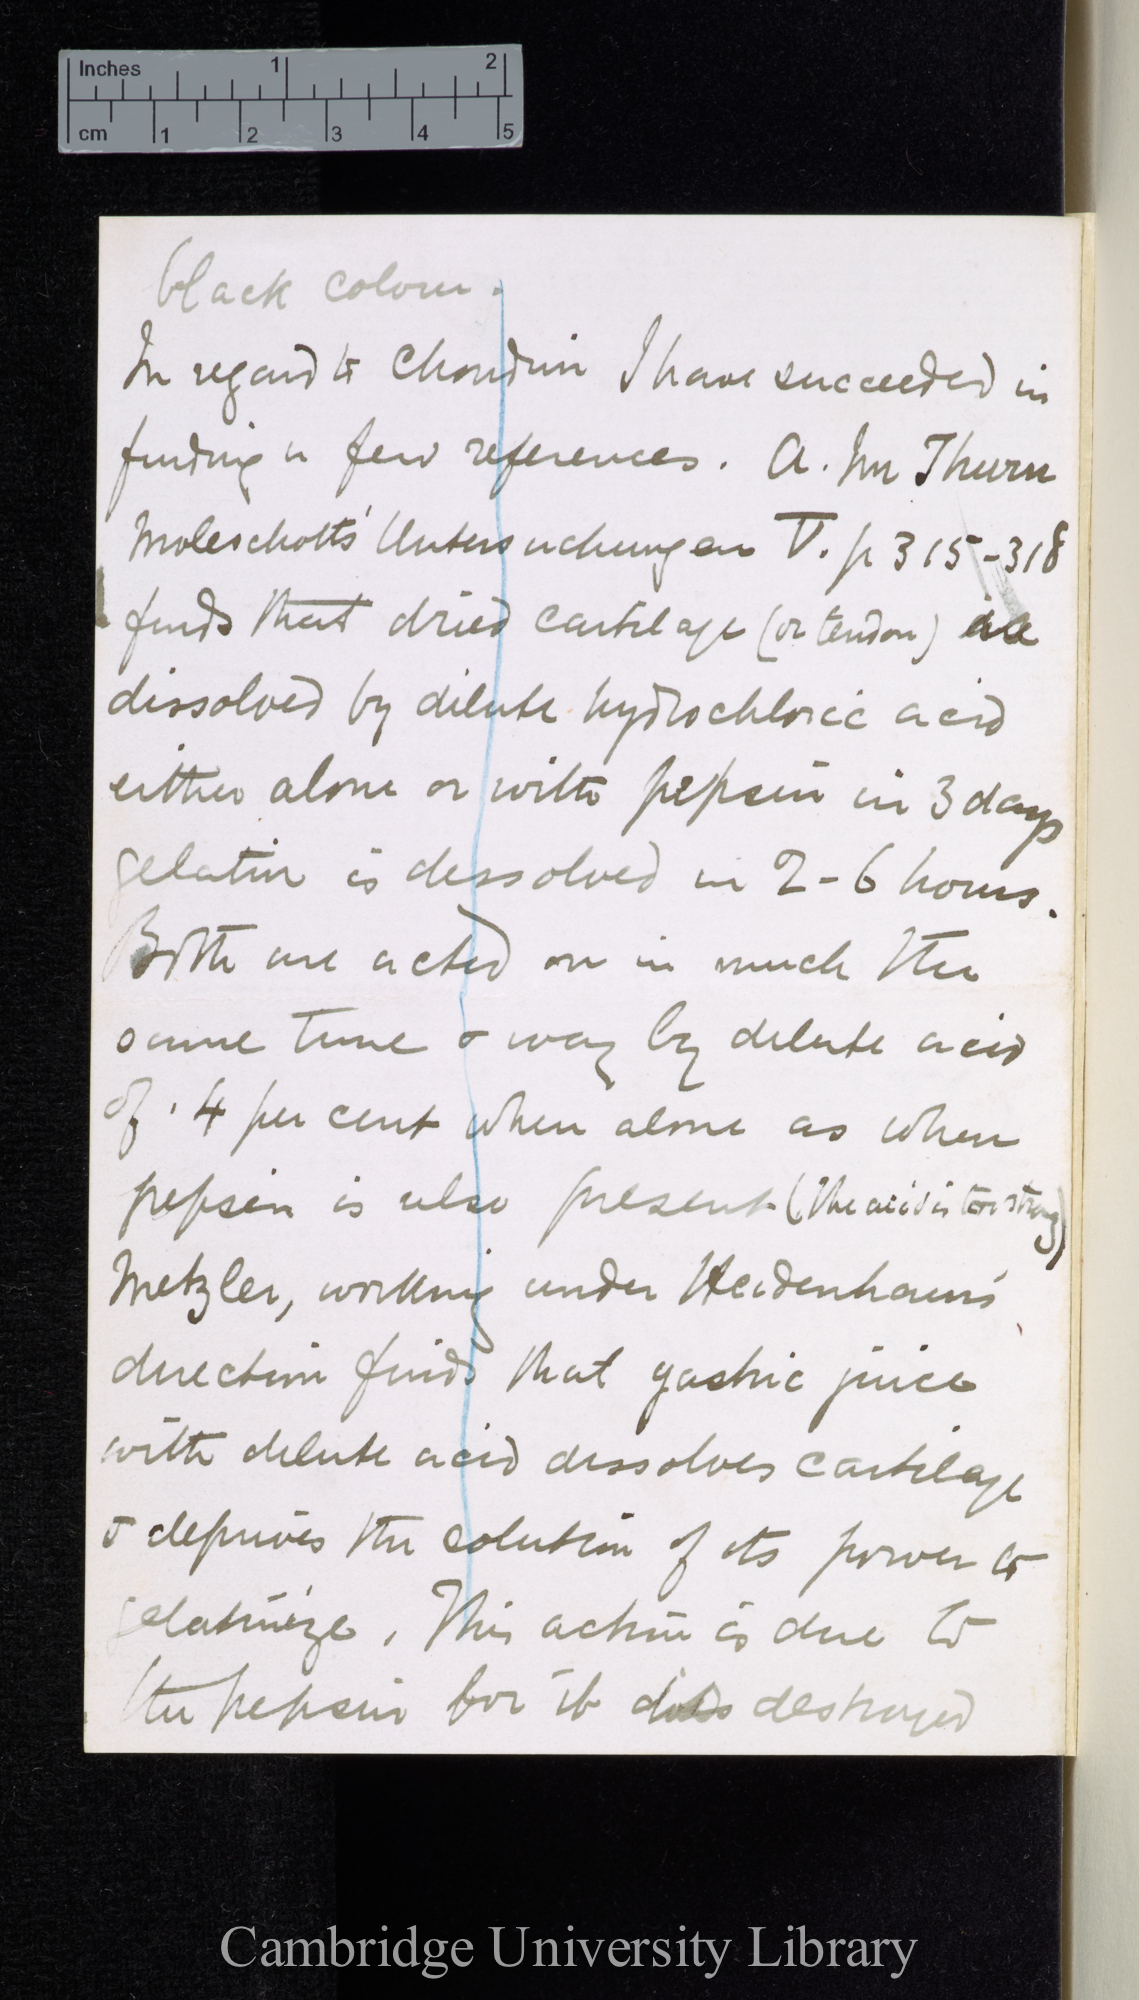 Inches 1 2
cm 1 2 3 4 5
black colour.
In regard to Chondrin I have succeeded in
finding a few references. A. Im Thurn
Moleschott's Untersuchungen V. p 315-318
finds that dried cartilage (or tendon) are
dissolved by dilute hydrochloric acid
either alone or with pepsin in 3 days
gelatin is dissolved in 2-6 hours.
Both are acted on in much the
same time & way by dilute acid
of .4 per cent when alone as when
pepsin is also present (The acid is too strong)
Metzler, working under Heidenhain's
direction finds that gastric juice
with dilute acid dissolves cartilage
& deprives the solution of its power to
gelatinize. This action is due to
the pepsin for it destroyed
Cambridge University Library